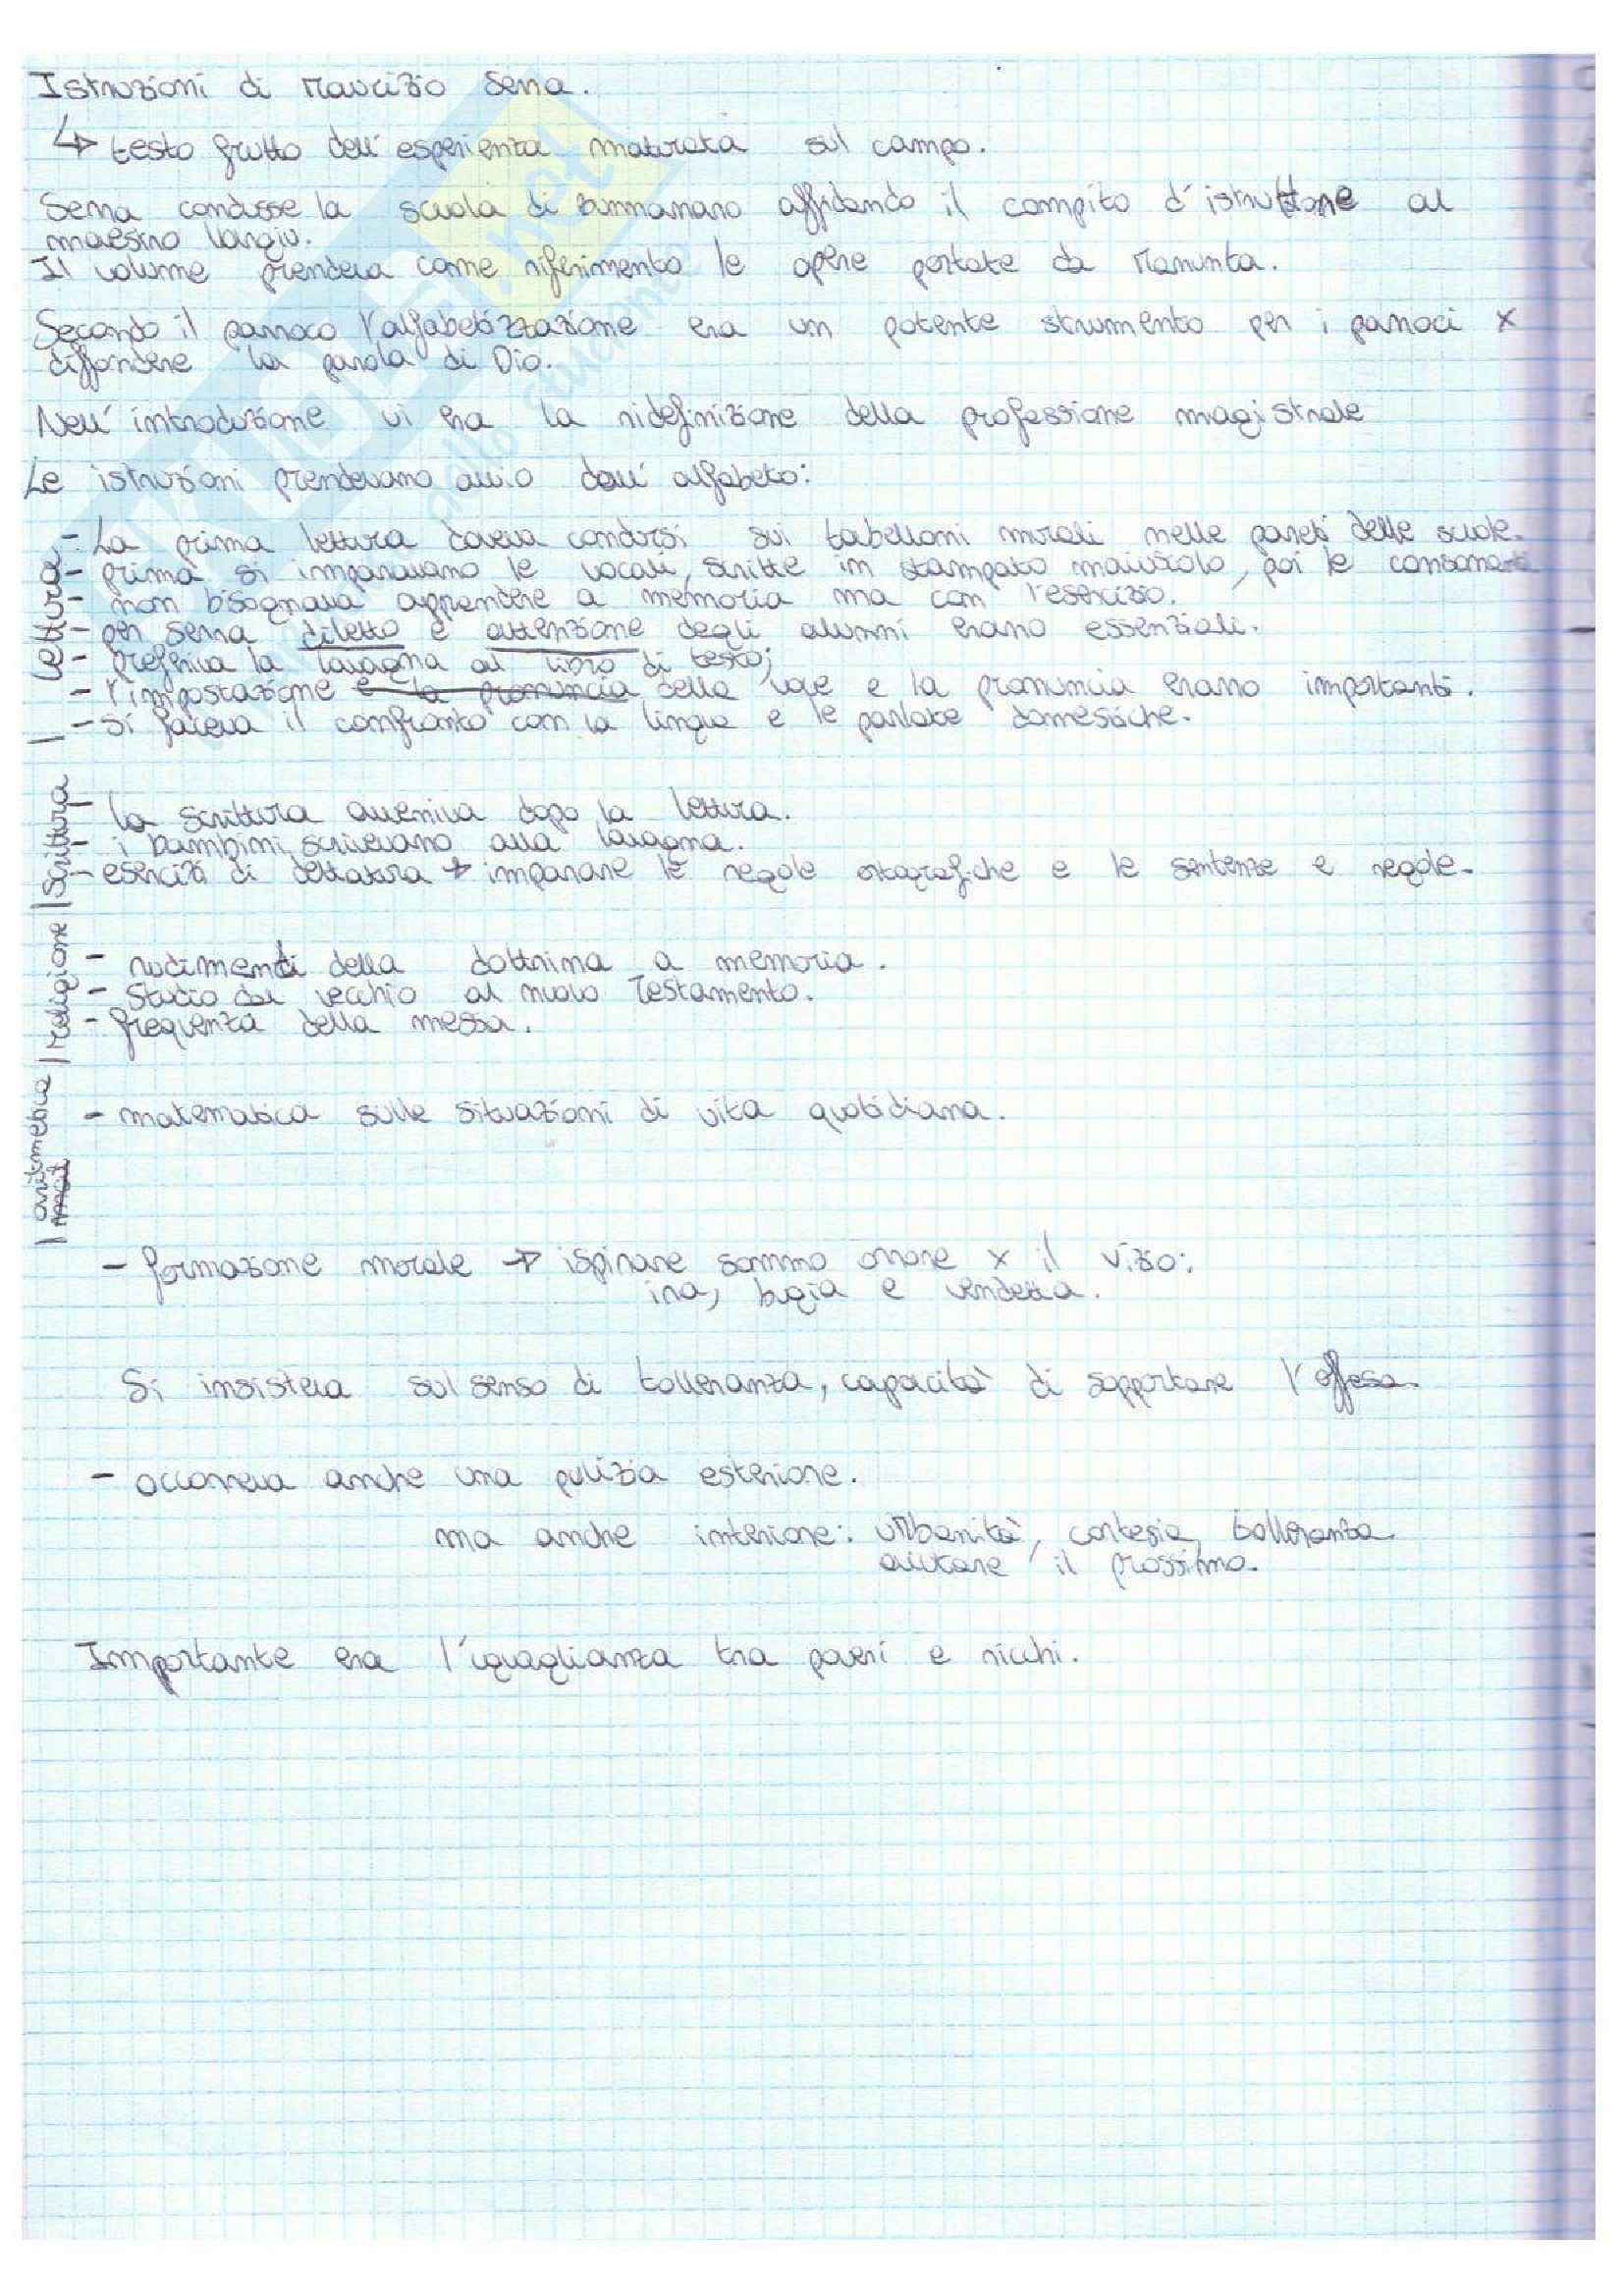 Istruzioni di Maurizio Serra.
↳ testo frutto dell'esperienza maturata sul campo.
Serra condusse la scuola di affidando il compito d'istruttore al
maestro Vargiu.
Il volume prendeva come riferimento le opere portate da Manunta.
Secondo il parroco l'alfabetizzazione era un potente strumento per i parroci x
diffondere la parola di Dio.
Nell'introduzione vi era la ridefinizione della professione magistrale
Le istruzioni prendevano avvio dall'alfabeto:
lettura
- La prima lettura doveva condursi sui tabelloni murali nelle pareti delle scuole.
- prima si imparavano le vocali, scritte in stampato maiuscolo, poi le consonanti
- non bisognava apprendere a memoria ma con l'esercizio.
- per Serra diletto e attenzione degli alunni erano essenziali.
- preferiva la lavagna al libro di testo;
- l'impostazione e la pronuncia della voce e la pronuncia erano importanti.
- Si faceva il confronto con la lingua e le parlate domestiche.
scrittura
- la scrittura avveniva dopo la lettura.
- i bambini scrivevano alla lavagna.
- esercizi di dettatura → imparare le regole ortografiche e le sentenze e regole.
religione
- rudimenti della dottrina a memoria.
- Studio dal vecchio al nuovo Testamento.
- frequenza della messa.
aritmetica
mat
- matematica sulle situazioni di vita quotidiana.
- formazione morale → ispirare sommo orrore x il vizio:
ira, bugia e vendetta.
Si insisteva sul senso di tolleranza, capacità di sopportare l'offesa.
- occorreva anche una pulizia esteriore.
ma anche interiore: urbanità, cortesia, tolleranza
aiutare il prossimo.
Importante era l'uguaglianza tra poveri e ricchi.